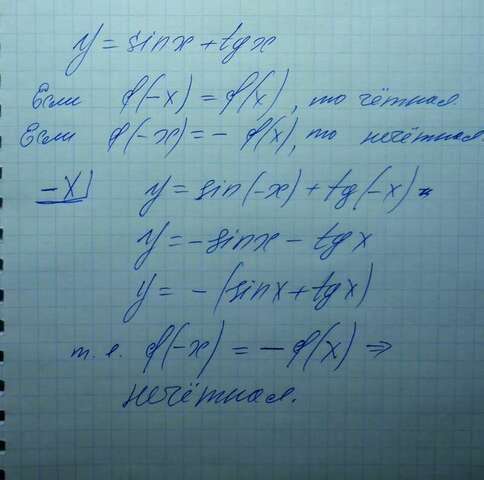 y = sinx + tgx
Если f(-x) = f(x), то чётная.
Если f(-x) = - f(x), то нечётная.
-x] y = sin(-x) + tg(-x) =
y = -sinx - tgx
y = - (sinx + tgx)
т.е. f(-x) = - f(x) ⇒
нечётная.